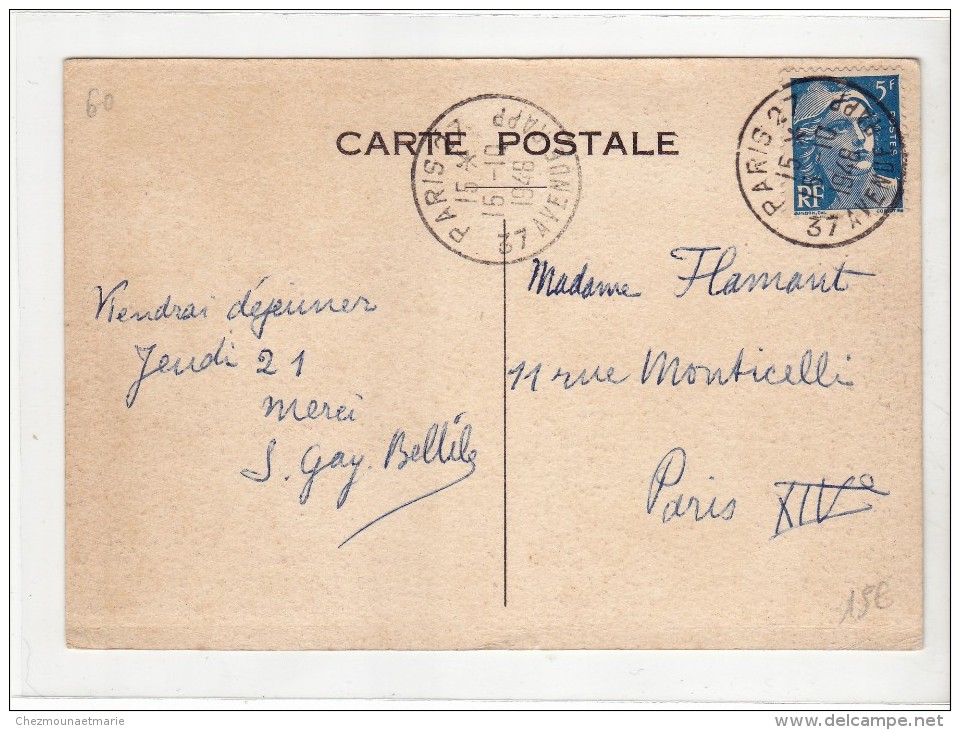 60
CARTE POSTALE
PARIS 27
15 *
15 -10
1948
37 AVENUE RAPP
5F
POSTES
RF
PARIS 27
15 *
15 -10
1948
37 AVENUE RAPP
Viendrai déjeuner
Jeudi 21
merci
S. Gay. Bellile
Madame Flamant
11 rue Monticelli
Paris XIVe
15€
Chezmounaetmarie
www.delcampe.net